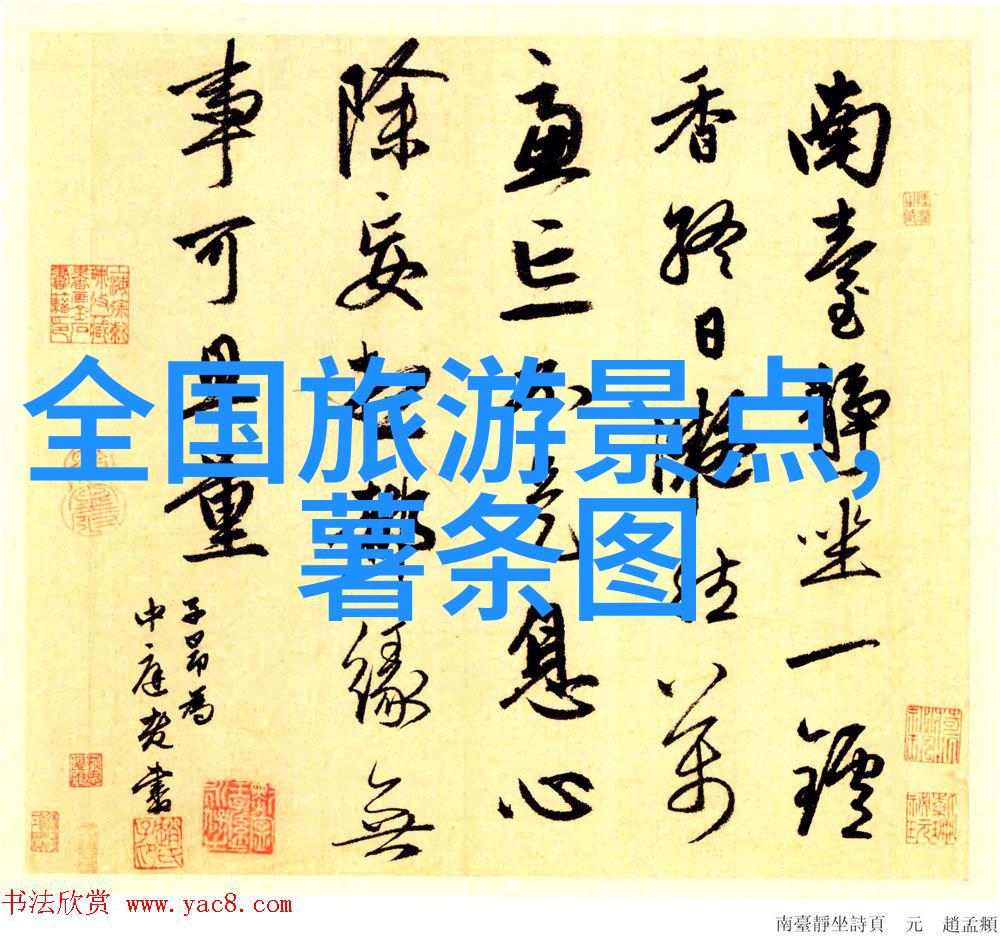 南臺靜坐一鑪
香終日凝萬
慮亡不是息心
除妄想緣無
事可量
子昂為
中庭老書
全国旅游景点,
薯条图
书法欣赏 www.yac8.com
南臺靜坐詩頁 元 趙孟頫